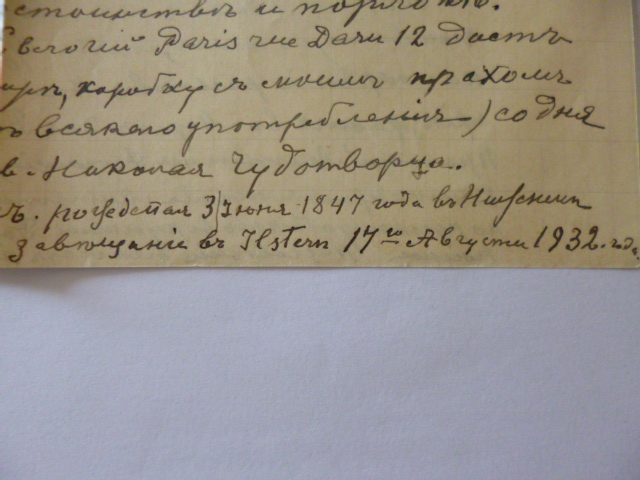 стоинствъ и
Евлогій Paris rue Dарu 12 дастъ
коробку съ моимъ прахомъ
всякаго употребленія) со дня
Николая Чудотворца.
3 Іюня 1847 года въ
завѣщаніе въ Ilstern 17го Августа 1932. года